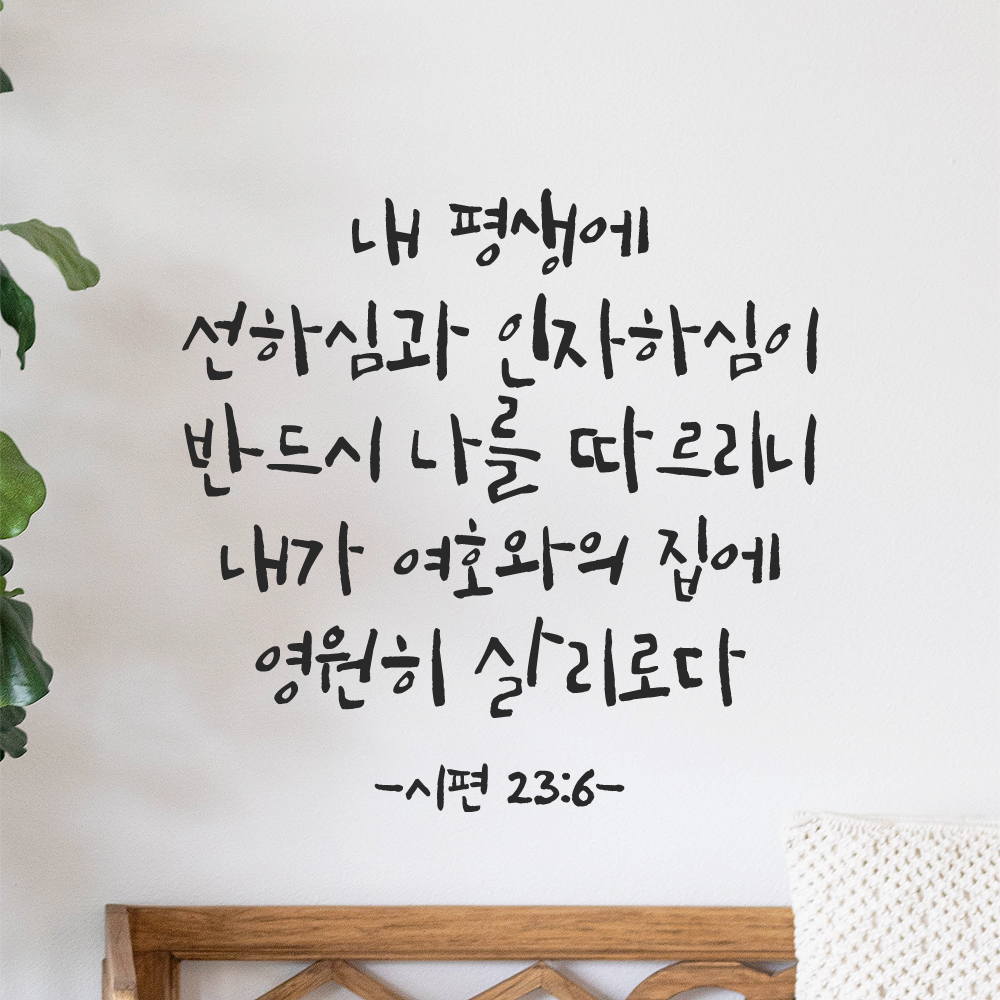 내 평생에
선하심과 인자하심이
반드시 나를 따르리니
내가 여호와의 집에
영원히 살리로다
-시편 23:6-